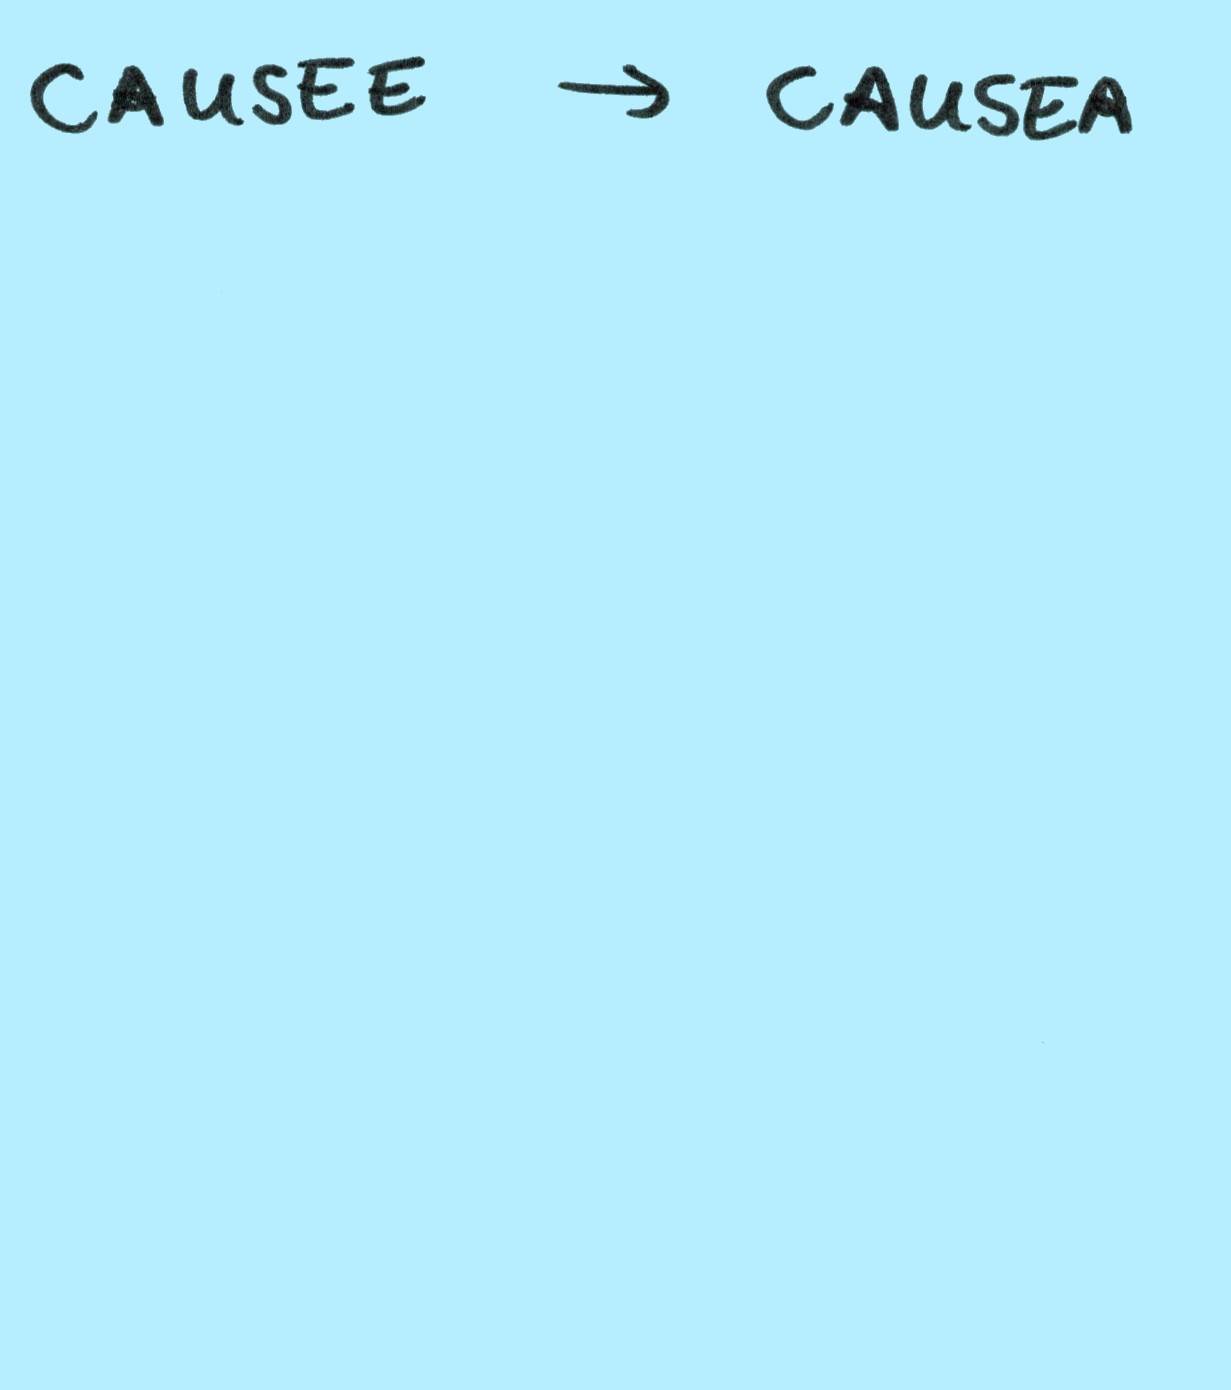 CAUSEE → CAUSEA